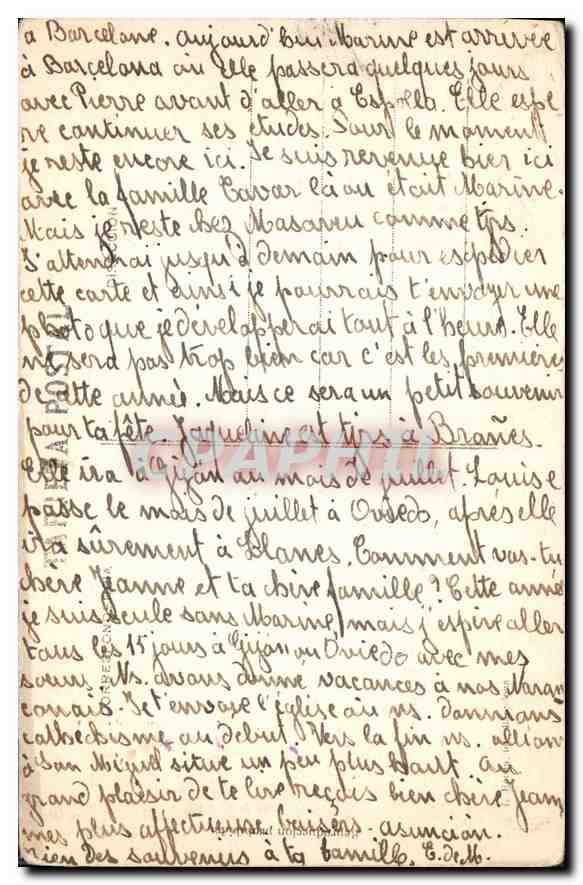 a Barcelone. Aujourd'hui Marine est arrivée
à Barcelona où elle passera quelques jours
avec Pierre avant d'aller à Espella. Elle espè
re continuer ses études. Pour le moment
je reste encore ici. Je suis revenue hier ici
avec la famille Tavar là où était Marine.
Mais je reste chez Masaveu comme tjrs.
J'attendrai jusqu'à demain pour expédier
cette carte et ainsi je pourrais t'envoyer une
photo que je développerai tout à l'heure. Elle
ne sera pas trop bien car c'est les premières
de cette année. Mais ce sera un petit souvenir
pour ta fête. Jaqueline est tjrs à Brañes.
Elle ira à Gijón au mois de juillet. Louise
passe le mois de juillet à Oviedo, après elle
ira sûrement à Llanes. Comment vas-tu
chère Jeanne et ta chère famille? Cette année
je suis seule sans Marine, mais j'espère aller
tous les 15 jours à Gijón ou Oviedo avec mes
soeurs. Ns. avons donné vacances à nos Naran
conais. Je t'envoie l'église où ns. donnions
cathéchisme au début. Vers la fin ns. allions
à San Miguel situé un peu plus haut. Au
grand plaisir de te lire reçois bien chère Jeanne
mes plus affectueux baisers. Asunción.
Bien des souvenirs à ta famille. E. de M.
TARJETA POSTAL
CORRESPONDENCIA
DIRECCION
CPAPHIL